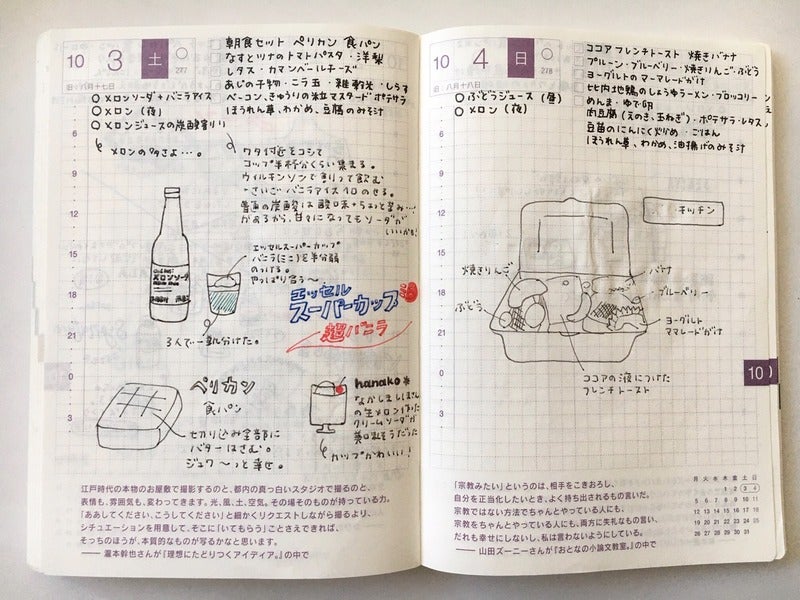 10 3 土 277
旧・八月十七日
朝食セット ペリカン 食パン
なすとツナのトマトパスタ・洋梨
レタス・カマンベールチーズ
あじの干物・ニラ玉・雑穀米・しらす
ベーコン、きゅうりの粒マスタードポテサラ
ほうれん草、わかめ、豆腐のみそ汁
メロンソーダ+バニラアイス
メロン(夜)
メロンジュースの炭酸割り
メロンの多さよ…。
ワタ付近をコシて
コップ半杯分くらい集まる。
ウィルキンソンで割って飲む
+さいごバニラアイスのせる。
普通の炭酸は酸味+
があるから、甘々になってもソーダが
いいかも!
メロンソーダ
エッセルスーパーカップ
バニラ(ミニ)を半分弱
のっける。
やっぱり合う〜
3人で一瓶分けた。
エッセル
スーパーカップ
超バニラ
ペリカン
食パン
切り込み全部に
バターはさむ。
ジュワ〜っと幸せ。
hanako*
なかしましほさん
の生メロン
クリームソーダが
美味そうだった
カップかわいい!
9
12
15
18
21
0
3
江戸時代の本物のお屋敷で撮影するのと、都内の真っ白いスタジオで撮るのと、
表情も、雰囲気も、変わってきます。光、風、土、空気。その場そのものが持っている力。
「ああしてください、こうしてください」と細かくリクエストしながら撮るより、
シチュエーションを用意して、そこに「いてもらう」ことさえできれば、
そっちのほうが、本質的なものが写るかなと思います。
——瀧本幹也さんが『理想にたどりつくアイディア。』の中で
10 4 日 278
旧・八月十八日
ココアフレンチトースト 焼きバナナ
プルーン・ブルーベリー・焼きりんご・ぶどう
ヨーグルトのマーマレードがけ
比内地鶏のしょうゆラーメン・ブロッコリー
めんま・ゆで卵
肉豆腐(えのき、玉ねぎ)・ポテサラ・レタス
豆苗のにんにく炒め・ごはん
ほうれん草、わかめ、油揚げのみそ汁
ぶどうジュース(昼)
メロン(夜)
キッチン
焼きりんご
バナナ
ブルーベリー
ぶどう
ヨーグルト
ママレードがけ
ココアの液につけた
フレンチトースト
9
12
15
18
21
0
3
10
「宗教みたい」というのは、相手をこきおろし、
自分を正当化したいとき、よく持ち出されるもの言いだ。
宗教ではない方法でちゃんとやっている人にも、
宗教をちゃんとやっている人にも、両方に失礼なもの言い、
だれも幸せにしないし、私は言わないようにしている。
——山田ズーニーさんが『おとなの小論文教室。』の中で
月 火 水 木 金 土 日
1 2 3 4
5 6 7 8 9 10 11
12 13 14 15 16 17 18
19 20 21 22 23 24 25
26 27 28 29 30 31